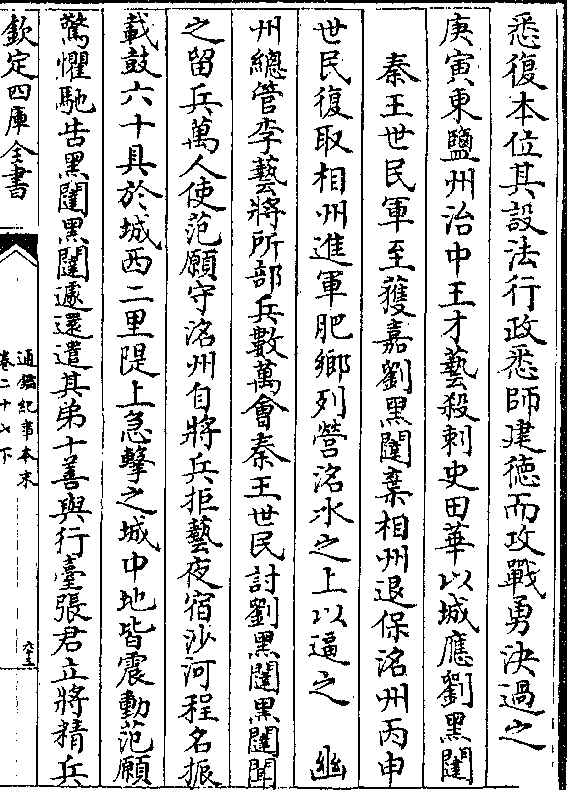 悉復本位其設法行政悉師建德而攻戰勇決過之
庚寅東鹽州治中王才藝殺刺史田華以城應劉黑闥
秦王世民軍至獲嘉劉黑闥棄相州退保洺州丙申
世民復取相州進軍肥鄉列營洺水之上以逼之　幽
州總管李藝將所部兵數萬會秦王世民討劉黑闥黑闥聞
之留兵萬人使范願守洺州自將兵拒藝夜宿沙河程名振
載鼓六十具於城西二里隄上急擊之城中地皆震動范願
驚懼馳告黑闥黑闥遽還遣其弟十善與行臺張君立將精兵
欽定四庫全書
通鑑紀事本末
卷二十七下
六十三